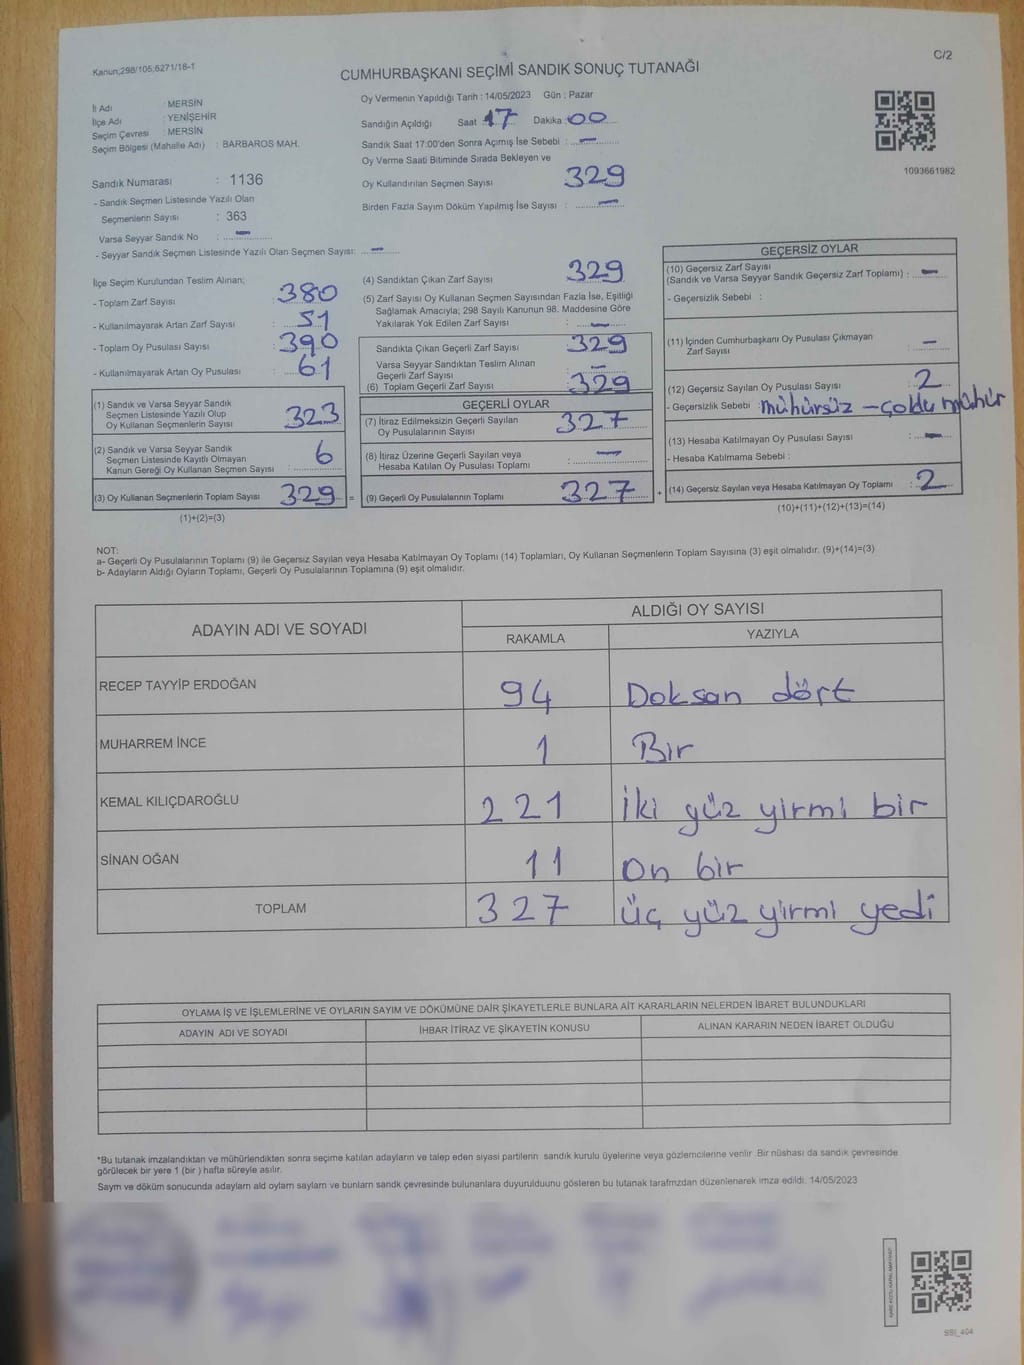 Kanun;298/105;6271/18-1
C/2
CUMHURBAŞKANI SEÇİMİ SANDIK SONUÇ TUTANAĞI
İl Adı : MERSİN
İlçe Adı : YENİŞEHİR
Seçim Çevresi : MERSİN
Seçim Bölgesi (Mahalle Adı) : BARBAROS MAH.
Sandık Numarası : 1136
- Sandık Seçmen Listesinde Yazılı Olan
Seçmenlerin Sayısı : 363
Varsa Seyyar Sandık No : —
- Seyyar Sandık Seçmen Listesinde Yazılı Olan Seçmen Sayısı: —
Oy Vermenin Yapıldığı Tarih : 14/05/2023 Gün : Pazar
Sandığın Açıldığı Saat 17 Dakika : 00
Sandık Saat 17:00'den Sonra Açımış İse Sebebi : —
Oy Verme Saati Bitiminde Sırada Bekleyen ve
Oy Kullandırılan Seçmen Sayısı 329
Birden Fazla Sayım Döküm Yapılmış İse Sayısı : —
1093661982
İlçe Seçim Kurulundan Teslim Alınan;
- Toplam Zarf Sayısı : 380
- Kullanılmayarak Artan Zarf Sayısı : 51
- Toplam Oy Pusulası Sayısı : 390
- Kullanılmayarak Artan Oy Pusulası : 61
(1) Sandık ve Varsa Seyyar Sandık
Seçmen Listesinde Yazılı Olup
Oy Kullanan Seçmenlerin Sayısı : 323
(2) Sandık ve Varsa Seyyar Sandık
Seçmen Listesinde Kayıtlı Olmayan
Kanun Gereği Oy Kullanan Seçmen Sayısı : 6
(3) Oy Kullanan Seçmenlerin Toplam Sayısı : 329 =
(1)+(2)=(3)
(4) Sandıktan Çıkan Zarf Sayısı : 329
(5) Zarf Sayısı Oy Kullanan Seçmen Sayısından Fazla İse, Eşitliği
Sağlamak Amacıyla; 298 Sayılı Kanunun 98. Maddesine Göre
Yakılarak Yok Edilen Zarf Sayısı : —
Sandıkta Çıkan Geçerli Zarf Sayısı : 329
Varsa Seyyar Sandıktan Teslim Alınan
Geçerli Zarf Sayısı : —
(6) Toplam Geçerli Zarf Sayısı : 329
GEÇERLİ OYLAR
(7) İtiraz Edilmeksizin Geçerli Sayılan
Oy Pusulalarının Sayısı : 327
(8) İtiraz Üzerine Geçerli Sayılan veya
Hesaba Katılan Oy Pusulası Toplamı : —
(9) Geçerli Oy Pusulalarının Toplamı : 327 +
GEÇERSİZ OYLAR
(10) Geçersiz Zarf Sayısı
(Sandık ve Varsa Seyyar Sandık Geçersiz Zarf Toplamı) : —
- Geçersizlik Sebebi :
(11) İçinden Cumhurbaşkanı Oy Pusulası Çıkmayan
Zarf Sayısı : —
(12) Geçersiz Sayılan Oy Pusulası Sayısı : 2
- Geçersizlik Sebebi : mühürsüz – çoklu mühür
(13) Hesaba Katılmayan Oy Pusulası Sayısı : —
- Hesaba Katılmama Sebebi :
(14) Geçersiz Sayılan veya Hesaba Katılmayan Oy Toplamı : 2
(10)+(11)+(12)+(13)=(14)
NOT:
a- Geçerli Oy Pusulalarının Toplamı (9) ile Geçersiz Sayılan veya Hesaba Katılmayan Oy Toplamı (14) Toplamları, Oy Kullanan Seçmenlerin Toplam Sayısına (3) eşit olmalıdır. (9)+(14)=(3)
b- Adayların Aldığı Oyların Toplamı, Geçerli Oy Pusulalarının Toplamına (9) eşit olmalıdır.
ADAYIN ADI VE SOYADI
ALDIĞI OY SAYISI
RAKAMLA YAZIYLA
RECEP TAYYİP ERDOĞAN 94 Doksan dört
MUHARREM İNCE 1 Bir
KEMAL KILIÇDAROĞLU 221 İki yüz yirmi bir
SİNAN OĞAN 11 On bir
TOPLAM 327 üç yüz yirmi yedi
OYLAMA İŞ VE İŞLEMLERİNE VE OYLARIN SAYIM VE DÖKÜMÜNE DAİR ŞİKAYETLERLE BUNLARA AİT KARARLARIN NELERDEN İBARET BULUNDUKLARI
ADAYIN ADI VE SOYADI İHBAR İTİRAZ VE ŞİKAYETİN KONUSU ALINAN KARARIN NEDEN İBARET OLDUĞU
*Bu tutanak imzalandıktan ve mühürlendikten sonra seçime katılan adayların ve talep eden siyasi partilerin sandık kurulu üyelerine veya gözlemcilerine verilir. Bir nüshası da sandık çevresinde
görülecek bir yere 1 (bir ) hafta süreyle asılır.
Saym ve döküm sonucunda adaylarn ald oylarn saylarn ve bunlarn sandk çevresinde bulunanlara duyurulduunu gösteren bu tutanak tarafmzdan düzenlenerek imza edildi. 14/05/2023
SBI_404